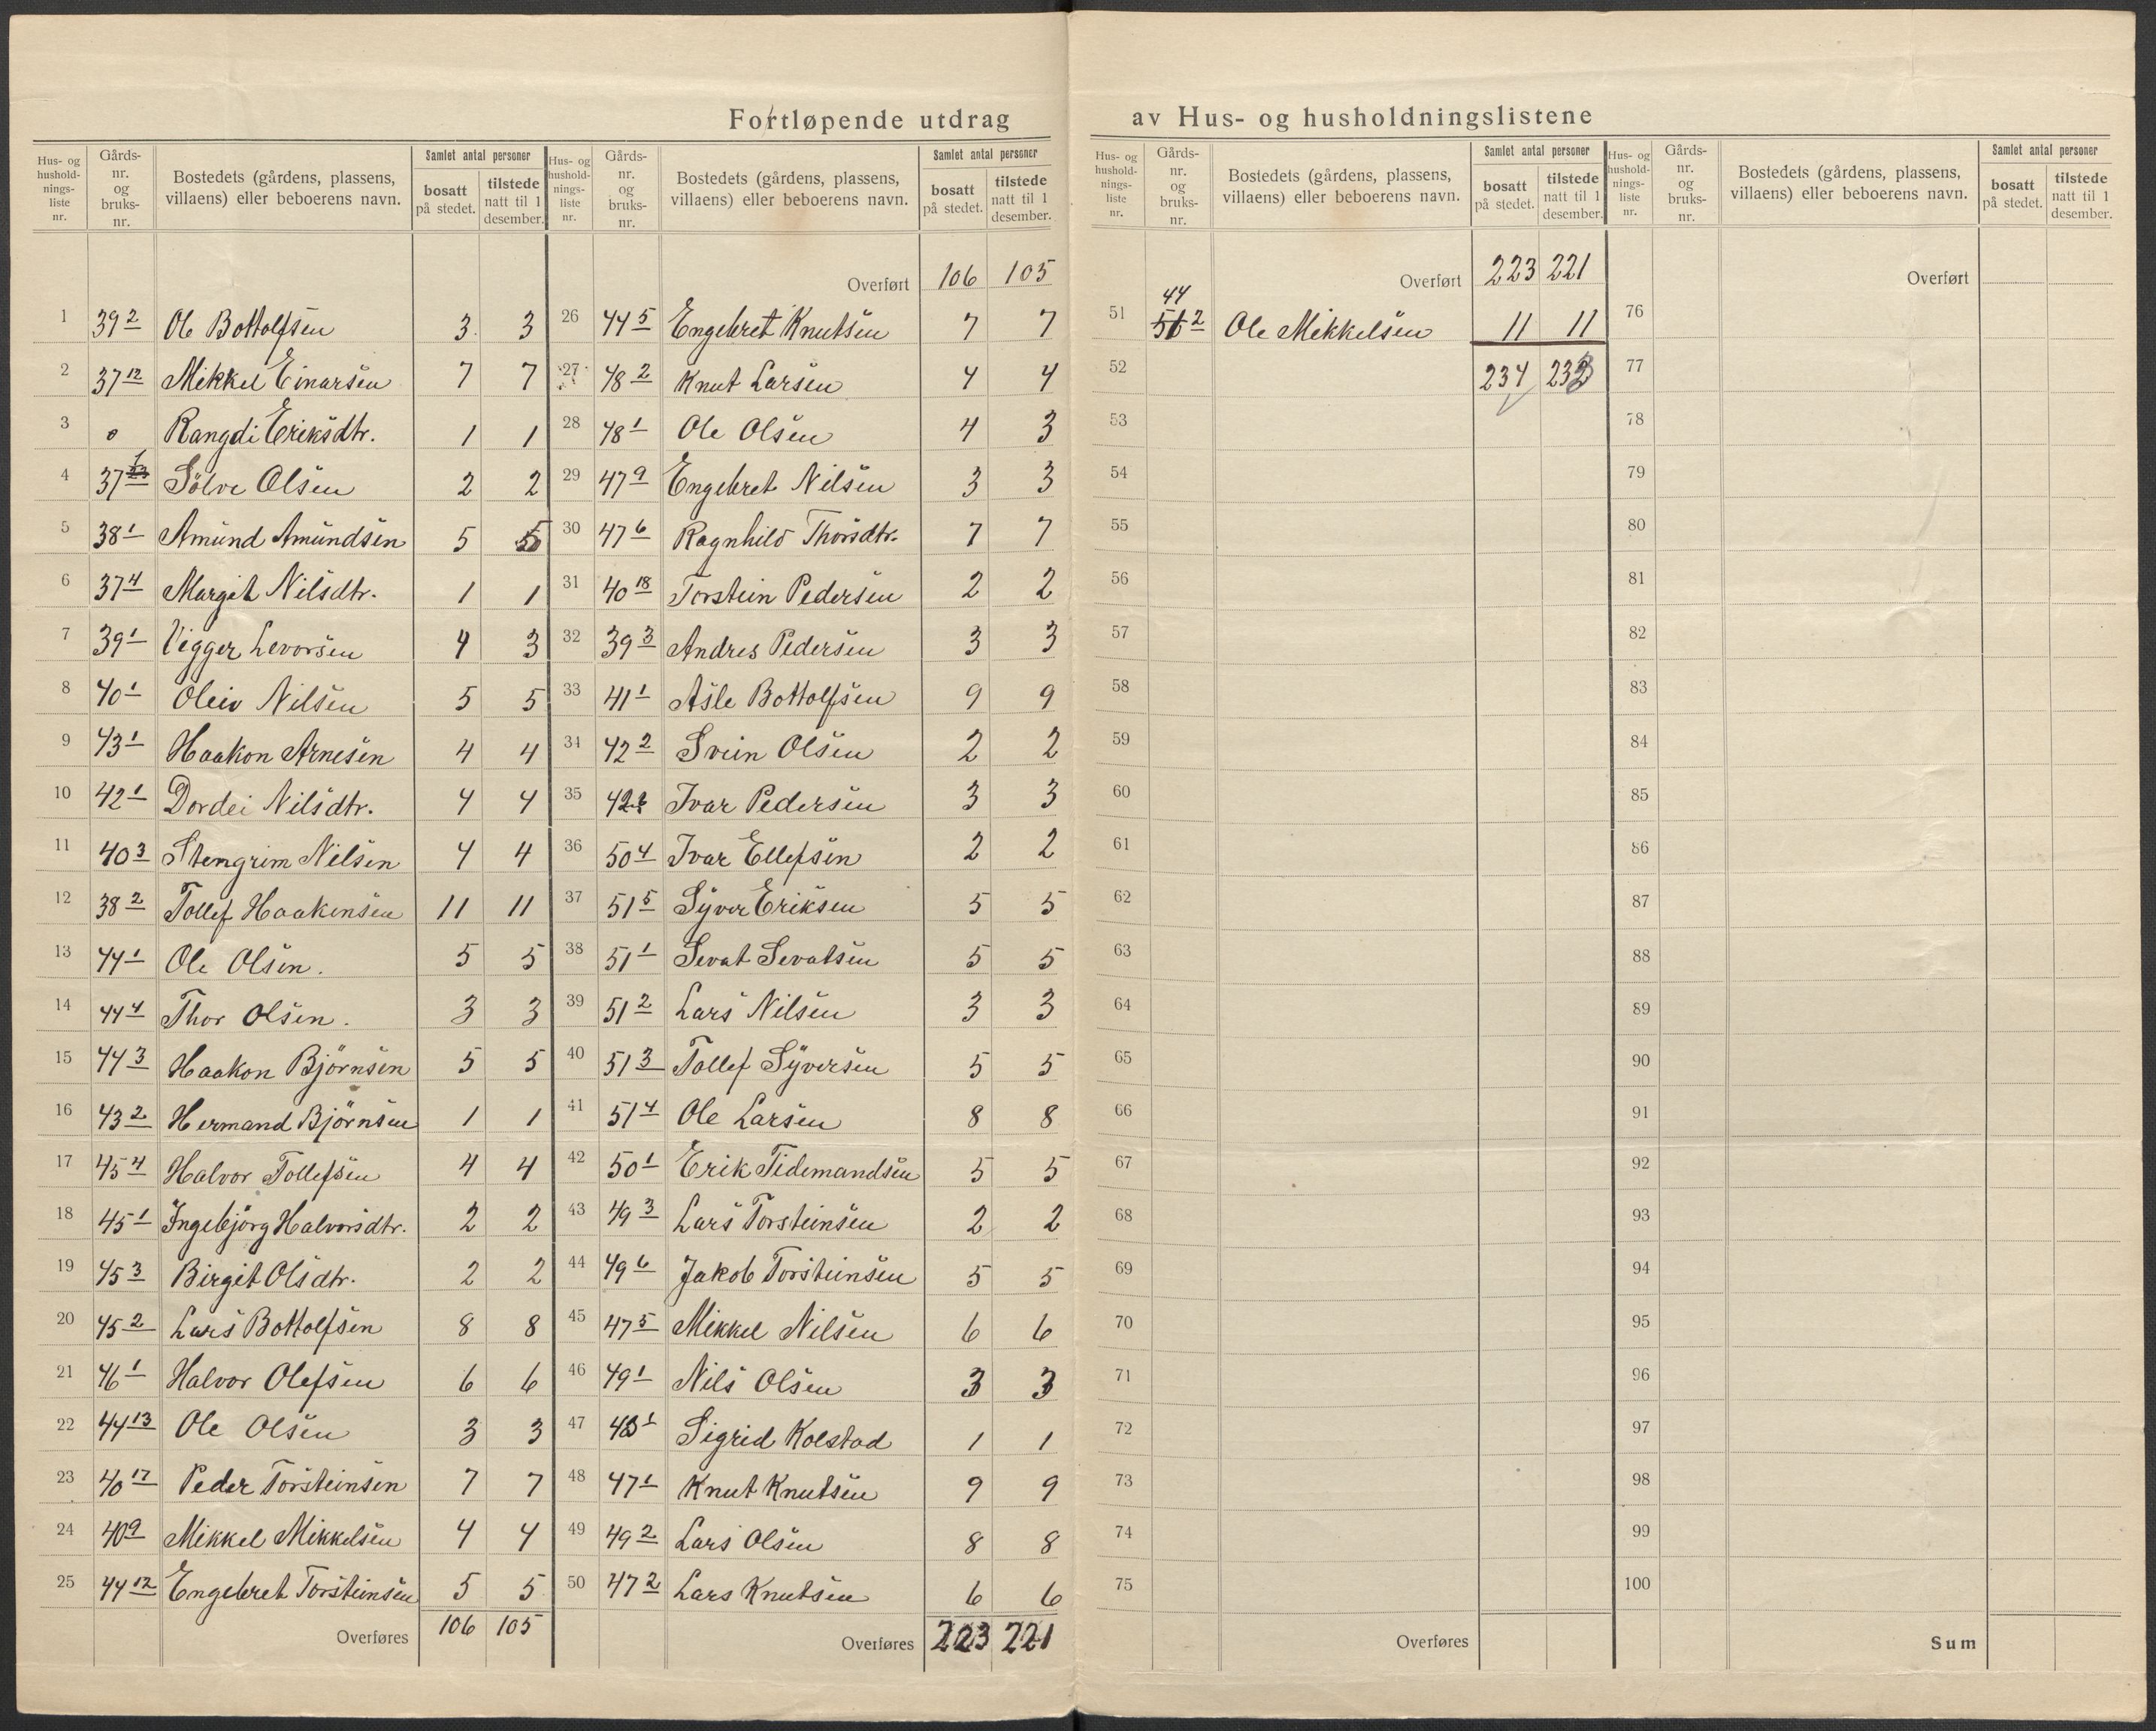 Fortløpende utdrag av Hus- og husholdningslistene
Hus- og hushold-nings-liste nr. | Gårds-nr. og bruks-nr. | Bostedets (gårdens, plassens, villaens) eller beboerens navn. | Samlet antal personer | bosatt på stedet. | tilstede natt til 1 desember.
1 39 2 Ole Bottolfsen 3 3
2 37 12 Mikkel Einarsen 7 7
3 o Rangdi Eriksdtr. 1 1
4 37 1 Sölve Olsen 2 2
5 38 1 Amund Amundsen 5 5
6 37 4 Margit Nilsdtr. 1 1
7 39 1 Vigger Levorsen 4 3
8 40 1 Oleiv Nilsen 5 5
9 43 1 Haakon Arnesen 4 4
10 42 1 Dordei Nilsdtr. 4 4
11 40 3 Stengrim Nilsen 4 4
12 38 2 Tollef Haakensen 11 11
13 44 1 Ole Olsen. 5 5
14 44 4 Thor Olsen. 3 3
15 44 3 Haakon Björnsen 5 5
16 43 2 Hermand Björnsen 1 1
17 45 4 Halvor Tollefsen 4 4
18 45 1 Ingebjörg Halvorsdtr. 2 2
19 45 3 Birgit Olsdtr. 2 2
20 45 2 Lars Bottolfsen 8 8
21 46 1 Halvor Olefsen 6 6
22 44 13 Ole Olsen 3 3
23 40 17 Peder Torsteinsen 7 7
24 40 9 Mikkel Mikkelsen 4 4
25 44 12 Engebret Torsteinsen 5 5
Overføres 106 105
Hus- og hushold-nings-liste nr. | Gårds-nr. og bruks-nr. | Bostedets (gårdens, plassens, villaens) eller beboerens navn. | Samlet antal personer | bosatt på stedet. | tilstede natt til 1 desember.
Overført 106 105
26 44 5 Engebret Knutsen 7 7
27 48 2 Knut Larsen 4 4
28 48 1 Ole Olsen 4 3
29 47 9 Engebret Nilsen 3 3
30 47 6 Ragnhild Thorsdtr. 7 7
31 40 18 Torstein Pedersen 2 2
32 39 3 Andres Pedersen 3 3
33 41 1 Asle Bottolfsen 9 9
34 42 2 Svein Olsen 2 2
35 42 Ivar Pedersen 3 3
36 50 4 Ivar Ellefsen 2 2
37 51 5 Syver Eriksen 5 5
38 51 1 Sevat Sevatsen 5 5
39 51 2 Lars Nilsen 3 3
40 51 3 Tollef Syversen 5 5
41 51 4 Ole Larsen 8 8
42 50 1 Erik Tidemandsen 5 5
43 49 3 Lars Torsteinsen 2 2
44 49 6 Jakob Torsteinsen 5 5
45 47 5 Mikkel Nilsen 6 6
46 49 1 Nils Olsen 3 3
47 1 Sigrid Kolstad 1 1
48 47 1 Knut Knutsen 9 9
49 49 2 Lars Olsen 8 8
50 47 2 Lars Knutsen 6 6
Overføres 223 221
Hus- og hushold-nings-liste nr. | Gårds-nr. og bruks-nr. | Bostedets (gårdens, plassens, villaens) eller beboerens navn. | Samlet antal personer | bosatt på stedet. | tilstede natt til 1 desember.
Overført 223 221
51 44 2 Ole Mikkelsen 11 11
52 234 232
53
54
55
56
57
58
59
60
61
62
63
64
65
66
67
68
69
70
71
72
73
74
75
Overføres
Hus- og hushold-nings-liste nr. | Gårds-nr. og bruks-nr. | Bostedets (gårdens, plassens, villaens) eller beboerens navn. | Samlet antal personer | bosatt på stedet. | tilstede natt til 1 desember.
Overført
76
77
78
79
80
81
82
83
84
85
86
87
88
89
90
91
92
93
94
95
96
97
98
99
100
Sum